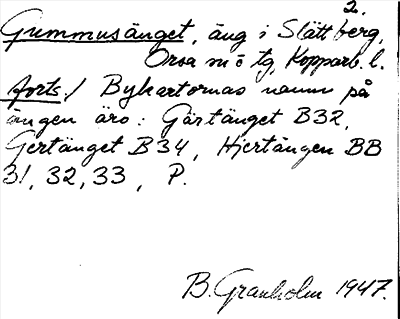 2.
Gummusänget, äng i Slättberg,
Orsa sn o tg, Kopparb. l.
forts./ Bykartornas namn på
ängen äro: Gärtänget B32,
Gertänget B34, Hjertängen BB
31, 32, 33, P.
B. Granholm 1947.